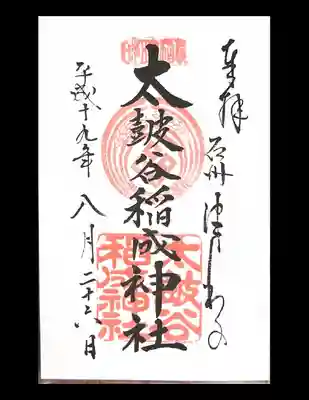 奉拝
石州 津わの
太皷谷稲成神社
太皷谷稲成神社
平成十九年
八月二十六日